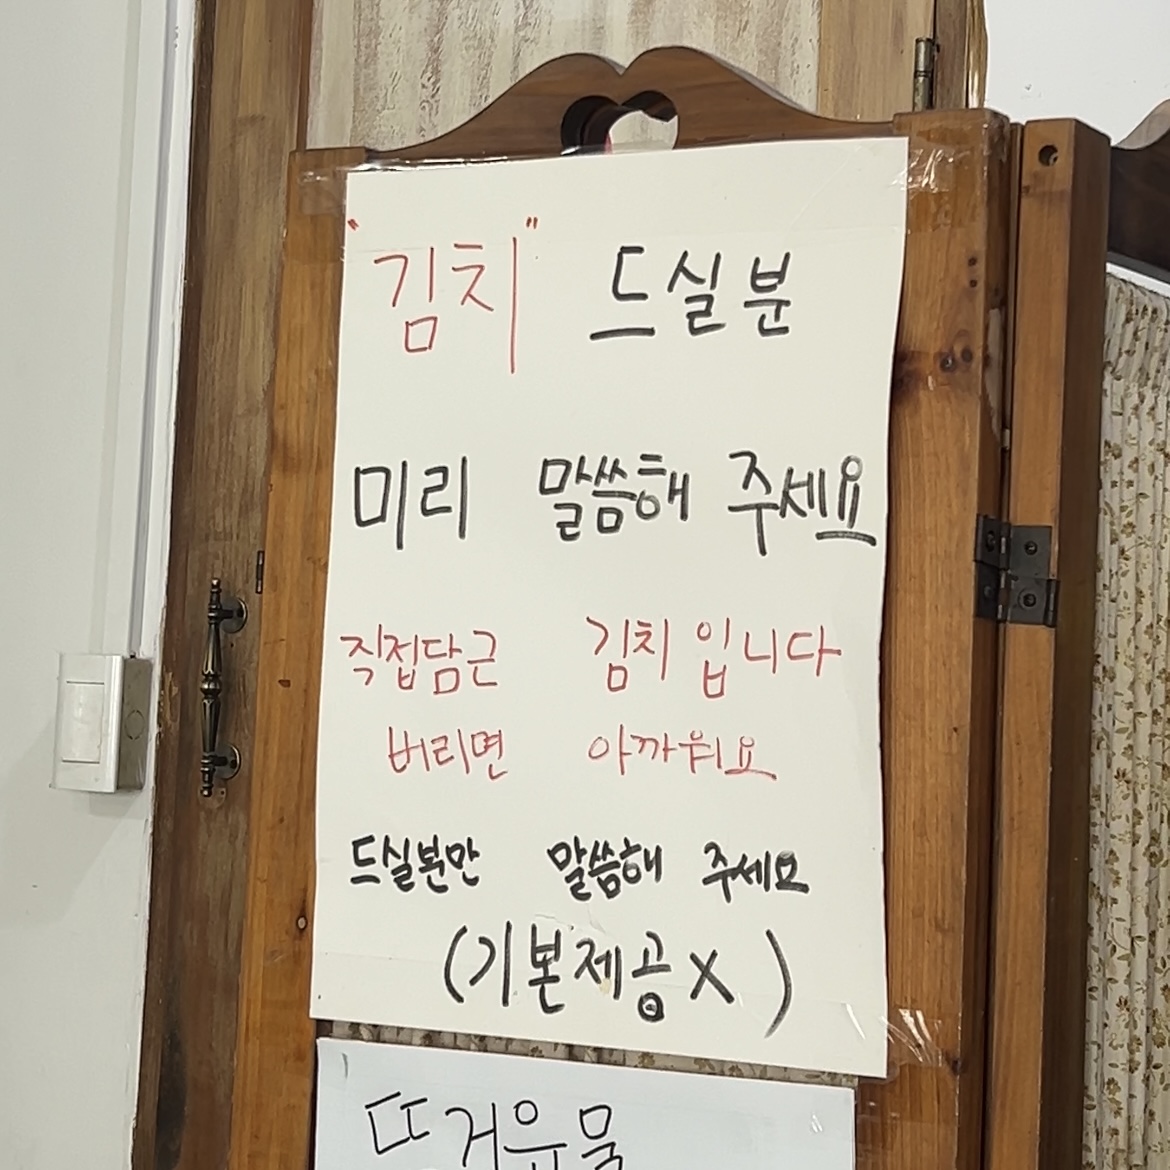 "김치" 드실분
미리 말씀해 주세요
직접담근 김치 입니다
버리면 아까워요
드실분만 말씀해 주세요
(기본제공X)
뜨거운물